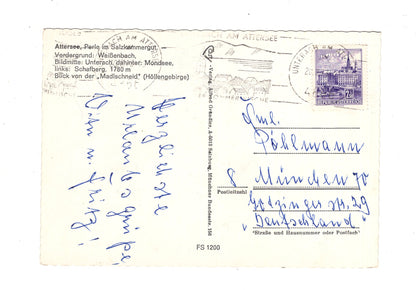 Attersee, Perle im Salzkammergut.
Vordergrund: Weißenbach,
Bildmitte: Unterach, dahinter: Mondsee,
links: Schafberg, 1780 m
Blick von der „Madlschneid" (Höllengebirge)
Herzlichste
Urlaubsgrüße
u. Fritz!
FS 1200
ACH AM ATTERSEE
UNTERACH AM
REPUBLIK ÖSTERREICH
Fml.
Pöhlmann
8 München 70
Postleitzahl
Gotzingerstr. 29
„Deutschland"
"Straße und Hausnummer oder Postfach"